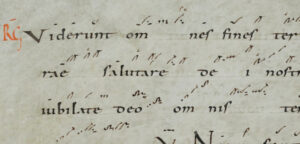 RG Viderunt om nes fines ter
rae salutare de i nostr
iubilate deo om nis ter